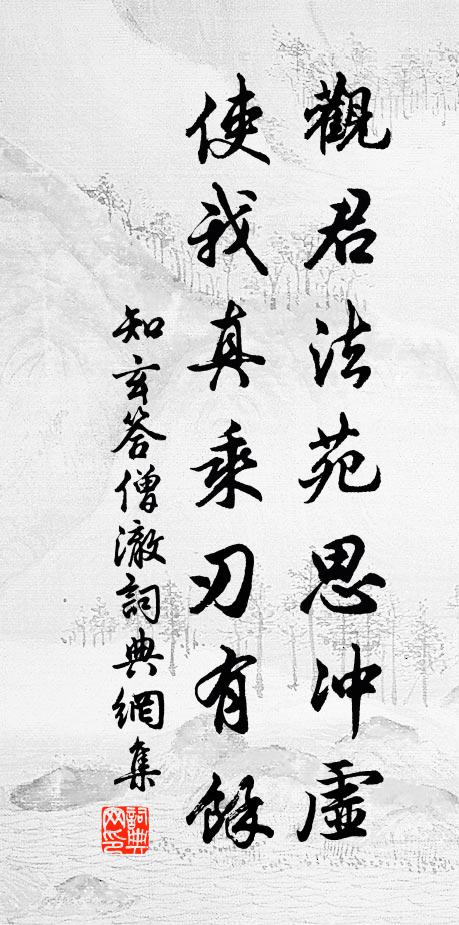 觀君法苑思沖虛
使我真乘刃有餘
知玄答僧澈詞典網集
詞典網印